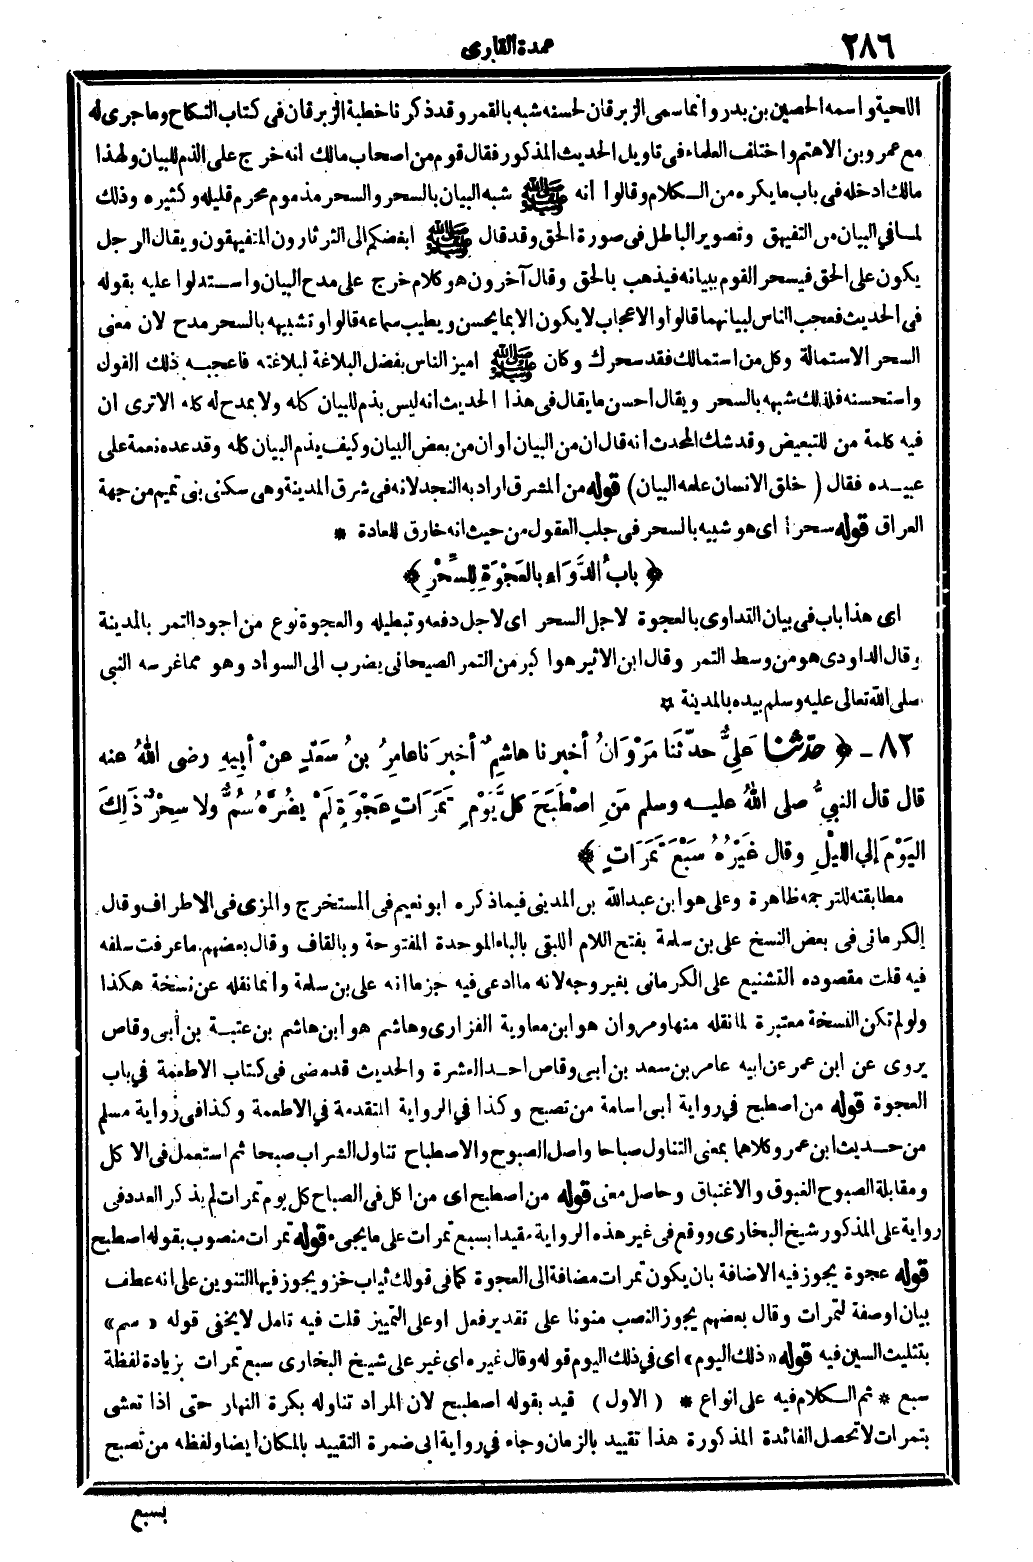 ٢٨٦
عمدة القارى
اللحية واسمه الحصين بن بدر وانما سمى الزبرقان لحسنه شبه بالقمر وقد ذكرنا خطبة الزبرقان فى كتاب النكاح وما جرى له
مع عمرو بن الاهتم واختلف العلماء فى تاويل الحديث المذكور فقال قوم من اصحاب مالك انه خرج على الذم للبيان ولهذا
مالك ادخله فى باب ما يكره من الكلام وقالوا انه ﷺ شبه البيان بالسحر والسحر مذموم محرم قليله وكثيره وذلك
لما فى البيان من التفيهق وتصوير الباطل فى صورة الحق وقد قال ﷺ ابغضكم الى الثرثارون المتفيهقون ويقال الرجل
يكون على الحق فيسحر القوم ببيانه فيذهب بالحق وقال آخرون هو كلام خرج على مدح البيان واستدلوا عليه بقوله
فى الحديث فعجب الناس لبيانهما قالوا والاعجاب لا يكون الا بما يحسن ويطيب سماعه قالوا وتشبيهه بالسحر مدح لان معنى
السحر الاستمالة وكل من استمالك فقد سحرك وكان ﷺ اميز الناس بفضل البلاغة لبلاغته فاعجبه ذلك القول
واستحسنه فلذلك شبهه بالسحر ويقال احسن ما يقال فى هذا الحديث انه ليس بذم للبيان كله ولا بمدح له كله الا ترى ان
فيه كلمة من للتبعيض وقد شك المحدث انه قال ان من البيان او ان من بعض البيان وكيف يذم البيان كله وقد عده نعمة على
عبيده فقال ( خلق الانسان علمه البيان) قوله من المشرق اراد به النجد لانه فى شرق المدينة وهى سكنى بنى تميم من جهة
العراق قوله سحرا اى هو شبيه بالسحر فى جلب العقول من حيث انه خارق للعادة *
﴿ بابُ الدَّوَاءِ بالعَجْوَةِ لِلسِّحْرِ ﴾
اى هذا باب فى بيان التداوى بالعجوة لاجل السحر اى لاجل دفعه وتبطيله والعجوة نوع من اجود التمر بالمدينة
وقال الداودى هو من وسط التمر وقال ابن الاثير هو اكبر من التمر الصيحانى يضرب الى السواد وهو مما غرسه النبى
صلى الله تعالى عليه وسلم بيده بالمدينة *
٨٢ - ﴿ حدّثنا عَلِيٌّ حدّثَنا مَرْوَانُ أخبرنا هاشِمٌ أخبرَنا عامِرُ بنُ سَعْدٍ عنْ أبِيهِ رضى اللهُ عنه
قال قال النبيُّ صلى اللهُ عليه وسلم مَنِ اصْطَبَحَ كلَّ يَوْمٍ تَمَرَاتٍ عَجْوَةٍ لَمْ يَضُرَّهُ سُمٌّ ولا سِحْرٌ ذَلِكَ
اليَوْمَ إلى الليْلِ وقال غَيْرُهُ سَبْعَ تَمَرَاتٍ ﴾
مطابقته للترجمة ظاهرة وعلى هو ابن عبدالله بن المدينى فيما ذكره ابو نعيم فى المستخرج والمزى فى الاطراف وقال
الكرمانى فى بعض النسخ على بن سلمة بفتح اللام اللبقى بالباء الموحدة المفتوحة وبالقاف وقال بعضهم ما عرفت سلفه
فيه قلت مقصوده التشنيع على الكرمانى بغير وجه لانه ما ادعى فيه جزما انه على بن سلمة وانما نقله عن نسخة هكذا
ولو لم تكن النسخة معتبرة لما نقله منها ومروان هو ابن معاوية الفزارى وهاشم هو ابن هاشم بن عتبة بن أبى وقاص
يروى عن ابن عم ابيه عامر بن سعد بن أبى وقاص احد العشرة والحديث قد مضى فى كتاب الاطعمة فى باب
العجوة قوله من اصطبح فى رواية ابى اسامة من تصبح وكذا فى الرواية المتقدمة فى الاطعمة وكذا فى رواية مسلم
من حديث ابن عمر وكلاهما بمعنى التناول صباحا واصل الصبوح والاصطباح تناول الشراب صبحا ثم استعمل فى الاكل
ومقابلة الصبوح الغبوق والاغتباق وحاصل معنى قوله من اصطبح اى من اكل فى الصباح كل يوم تمرات لم يذكر العدد فى
رواية على المذكور شيخ البخارى ووقع فى غير هذه الرواية مقيدا بسبع تمرات على ما يجىء قوله تمرات منصوب بقوله اصطبح
قوله عجوة يجوز فيه الاضافة بان يكون تمرات مضافة الى العجوة كما فى قولك ثياب خز ويجوز فيها التنوين على انه عطف
بيان او صفة لتمرات وقال بعضهم يجوز النصب منونا على تقدير فعل او على التمييز قلت فيه تامل لا يخفى قوله «سم»
بتثليث السين فيه قوله «ذلك اليوم» اى فى ذلك اليوم قوله وقال غيره اى غير على شيخ البخارى سبع تمرات بزيادة لفظة
سبع * ثم الكلام فيه على انواع * ( الاول ) قيد بقوله اصطبح لان المراد تناوله بكرة النهار حتى اذا تعشى
بتمرات لا تحصل الفائدة المذكورة هذا تقييد بالزمان وجاء فى رواية ابى ضمرة التقييد بالمكان ايضا ولفظه من تصبح
بسبع